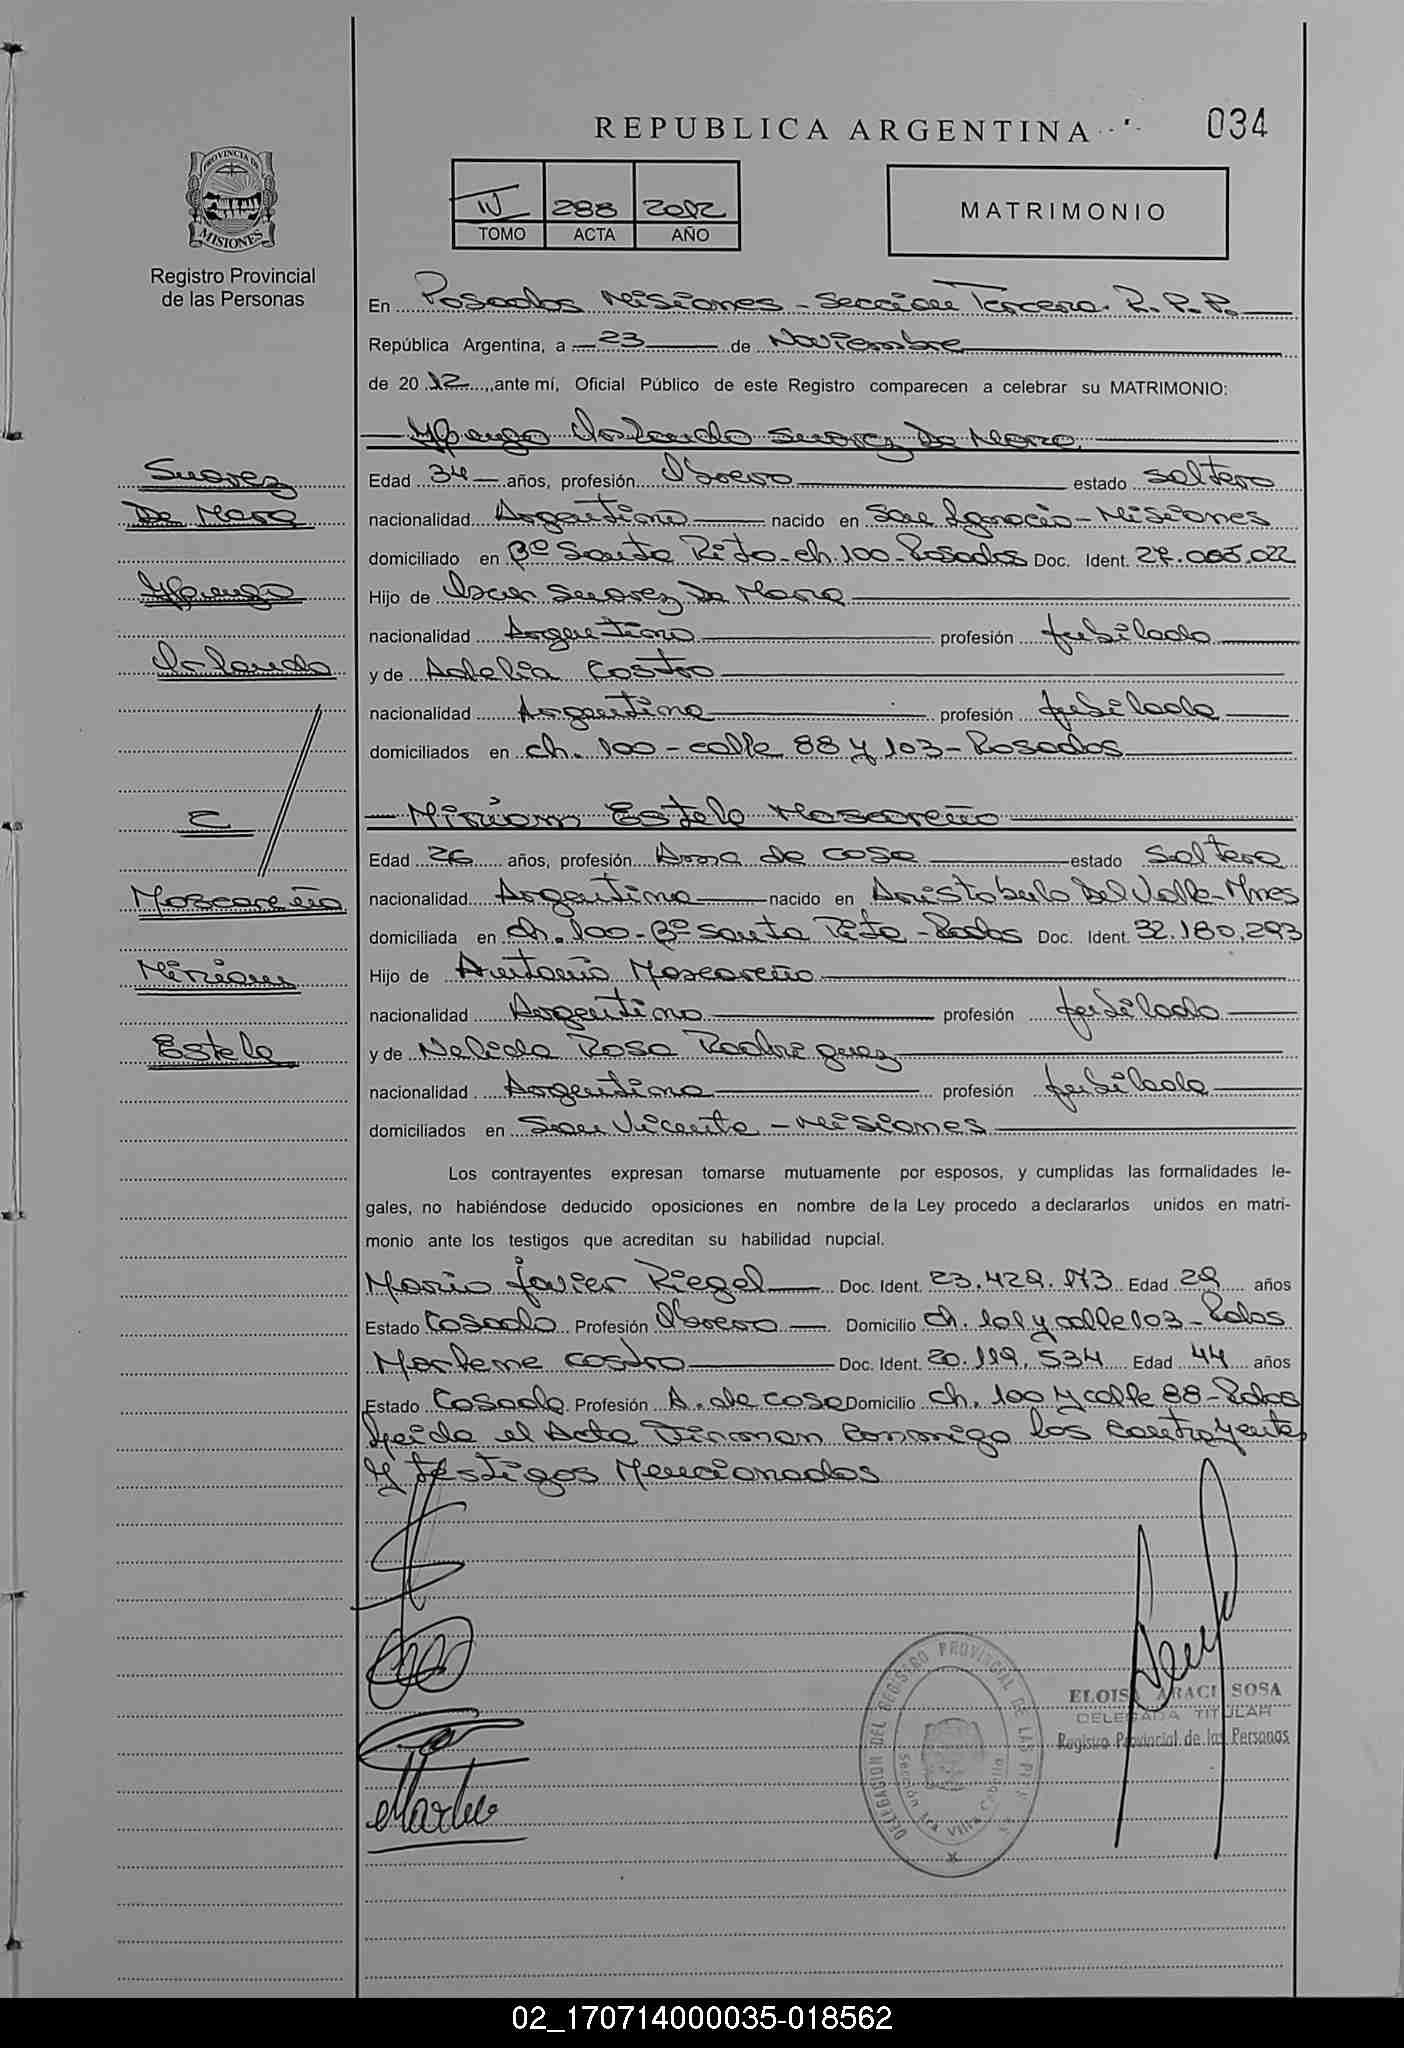 REPUBLICA ARGENTINA
034
PROVINCIA DE
MISIONES
Registro Provincial
de las Personas
IV 288 2012
TOMO ACTA AÑO
MATRIMONIO
En Posadas Misiones - Seccion Tercera. R.P.P.
República Argentina, a 23 de Noviembre
de 2012, ante mí, Oficial Público de este Registro comparecen a celebrar su MATRIMONIO:
Orlando Suarez De Mara
Suarez
De Mara
Orlando
Edad 34 años, profesión Obrero estado Soltero
nacionalidad Argentino nacido en San Ignacio - Misiones
domiciliado en Bº Santa Rita - ch. 100 - Posadas Doc. Ident. 27.005.022
Hijo de Oscar Suarez De Mara
nacionalidad Argentino profesión jubilado
y de Adelia Castro
nacionalidad Argentina profesión jubilada
domiciliados en ch. 100 - calle 88 y 103 - Posadas
C
Miriam Estela Mascareño
Edad 26 años, profesión Ama de casa estado Soltera
Mascareño
Miriam
Estela
nacionalidad Argentina nacido en Aristobulo Del Valle - Mnes
domiciliada en ch. 100 - Bº Santa Rita - Pdas Doc. Ident. 32.180.293
Hijo de Antonio Mascareño
nacionalidad Argentino profesión jubilado
y de Nelida Rosa Rodriguez
nacionalidad Argentina profesión jubilada
domiciliados en San Vicente - Misiones
Los contrayentes expresan tomarse mutuamente por esposos, y cumplidas las formalidades le-
gales, no habiéndose deducido oposiciones en nombre de la Ley procedo a declararlos unidos en matri-
monio ante los testigos que acreditan su habilidad nupcial.
Mario javier Riegel Doc. Ident. 23.429.173 Edad 29 años
Estado Casado Profesión Obrero Domicilio ch. 101 y calle 103 - Pdas
Marlene Castro Doc. Ident. 20.119.534 Edad 44 años
Estado Casada Profesión A. de casa Domicilio ch. 100 y calle 88 - Pdas
Leida el Acta Firman conmigo los contrayentes
y testigos Mencionados
DELEGACION DEL REGISTRO PROVINCIAL DE LAS
Sección 3ra Villa Cabello
ELOISA ARACI SOSA
DELEGADA TITULAR
Registro Provincial de las Personas
02_170714000035-018562